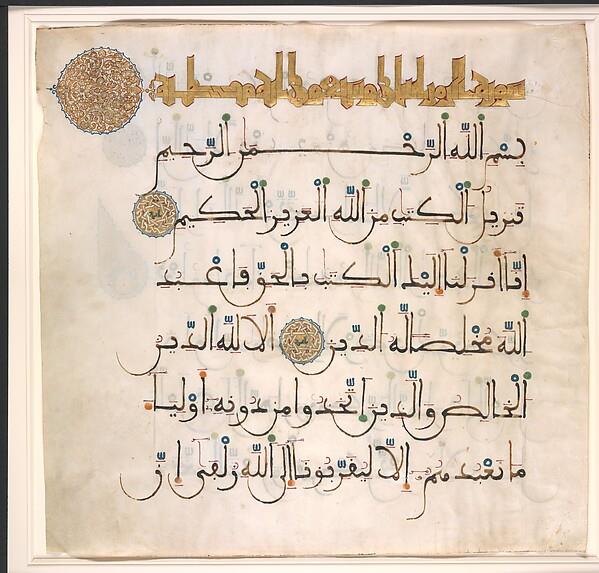 سورة الزمر
بِسْمِ اللَّهِ الرَّحْمَٰنِ الرَّحِيمِ
تَنزِيلُ الْكِتَٰبِ مِنَ اللَّهِ الْعَزِيزِ الْحَكِيمِ
إِنَّا أَنزَلْنَا إِلَيْكَ الْكِتَٰبَ بِالْحَقِّ فَاعْبُدِ
اللَّهَ مُخْلِصًا لَّهُ الدِّينَ أَلَا لِلَّهِ الدِّينُ
الْخَالِصُ وَالَّذِينَ اتَّخَذُوا مِن دُونِهِ أَوْلِيَا
مَا نَعْبُدُهُمْ إِلَّا لِيُقَرِّبُونَا إِلَى اللَّهِ زُلْفَىٰ إِنَّ